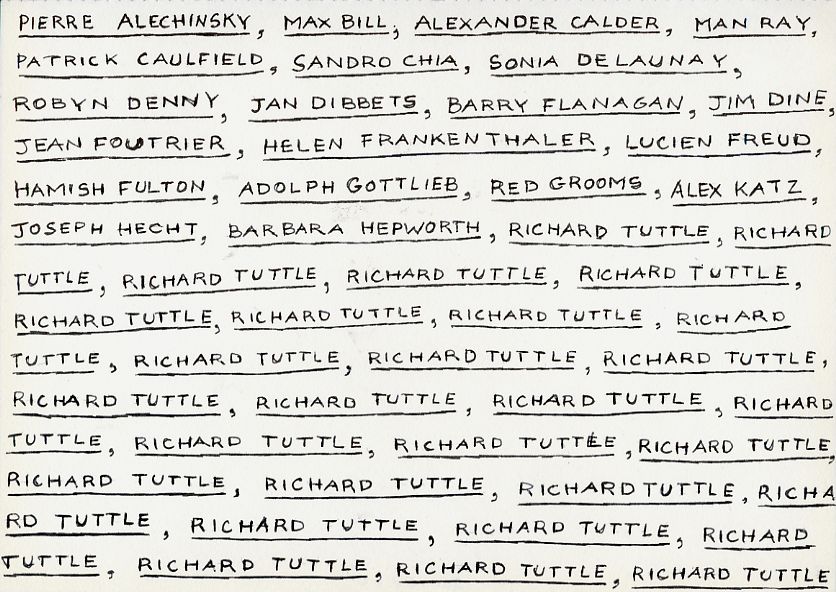 PIERRE ALECHINSKY, MAX BILL, ALEXANDER CALDER, MAN RAY,
PATRICK CAULFIELD, SANDRO CHIA, SONIA DELAUNAY,
ROBYN DENNY, JAN DIBBETS, BARRY FLANAGAN, JIM DINE,
JEAN FOUTRIER, HELEN FRANKENTHALER, LUCIEN FREUD,
HAMISH FULTON, ADOLPH GOTTLIEB, RED GROOMS, ALEX KATZ,
JOSEPH HECHT, BARBARA HEPWORTH, RICHARD TUTTLE, RICHARD
TUTTLE, RICHARD TUTTLE, RICHARD TUTTLE, RICHARD TUTTLE,
RICHARD TUTTLE, RICHARD TUTTLE, RICHARD TUTTLE, RICHARD
TUTTLE, RICHARD TUTTLE, RICHARD TUTTLE, RICHARD TUTTLE,
RICHARD TUTTLE, RICHARD TUTTLE, RICHARD TUTTLE, RICHARD
TUTTLE, RICHARD TUTTLE, RICHARD TUTTLE, RICHARD TUTTLE,
RICHARD TUTTLE, RICHARD TUTTLE, RICHARD TUTTLE, RICHA
RD TUTTLE, RICHARD TUTTLE, RICHARD TUTTLE, RICHARD
TUTTLE, RICHARD TUTTLE, RICHARD TUTTLE, RICHARD TUTTLE